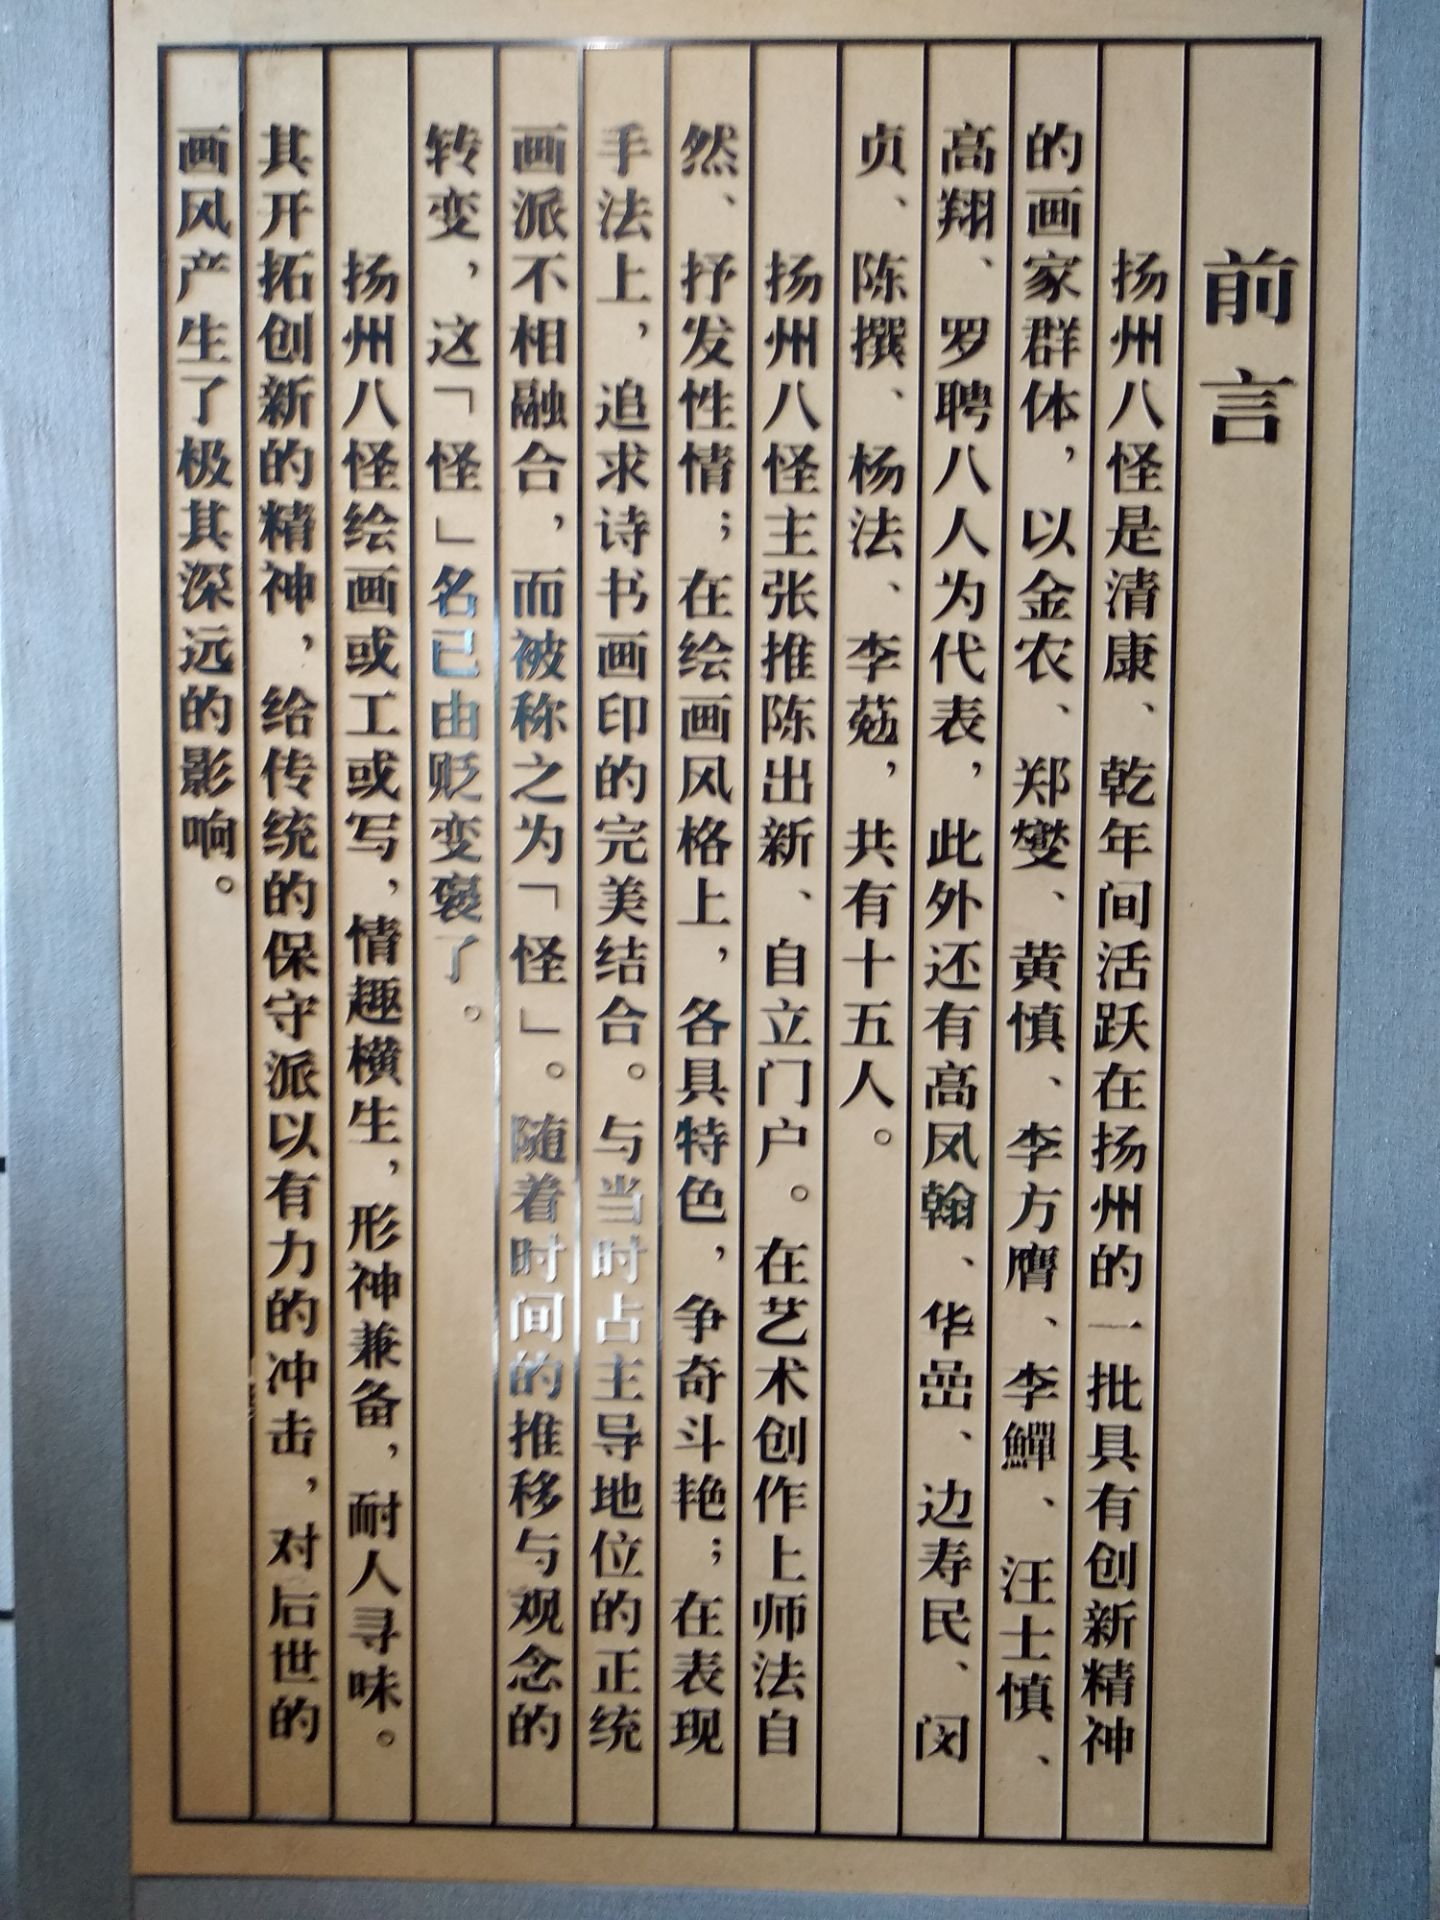 前言
扬州八怪是清康、乾年间活跃在扬州的一批具有创新精神
的画家群体，以金农、郑燮、黄慎、李方膺、李鱓、汪士慎、
高翔、罗聘八人为代表，此外还有高凤翰、华嵒、边寿民、闵
贞、陈撰、杨法、李葂，共有十五人。
扬州八怪主张推陈出新、自立门户。在艺术创作上师法自
然、抒发性情；在绘画风格上，各具特色，争奇斗艳；在表现
手法上，追求诗书画印的完美结合。与当时占主导地位的正统
画派不相融合，而被称之为「怪」。随着时间的推移与观念的
转变，这「怪」名已由贬变褒了。
扬州八怪绘画或工或写，情趣横生，形神兼备，耐人寻味。
其开拓创新的精神，给传统的保守派以有力的冲击，对后世的
画风产生了极其深远的影响。